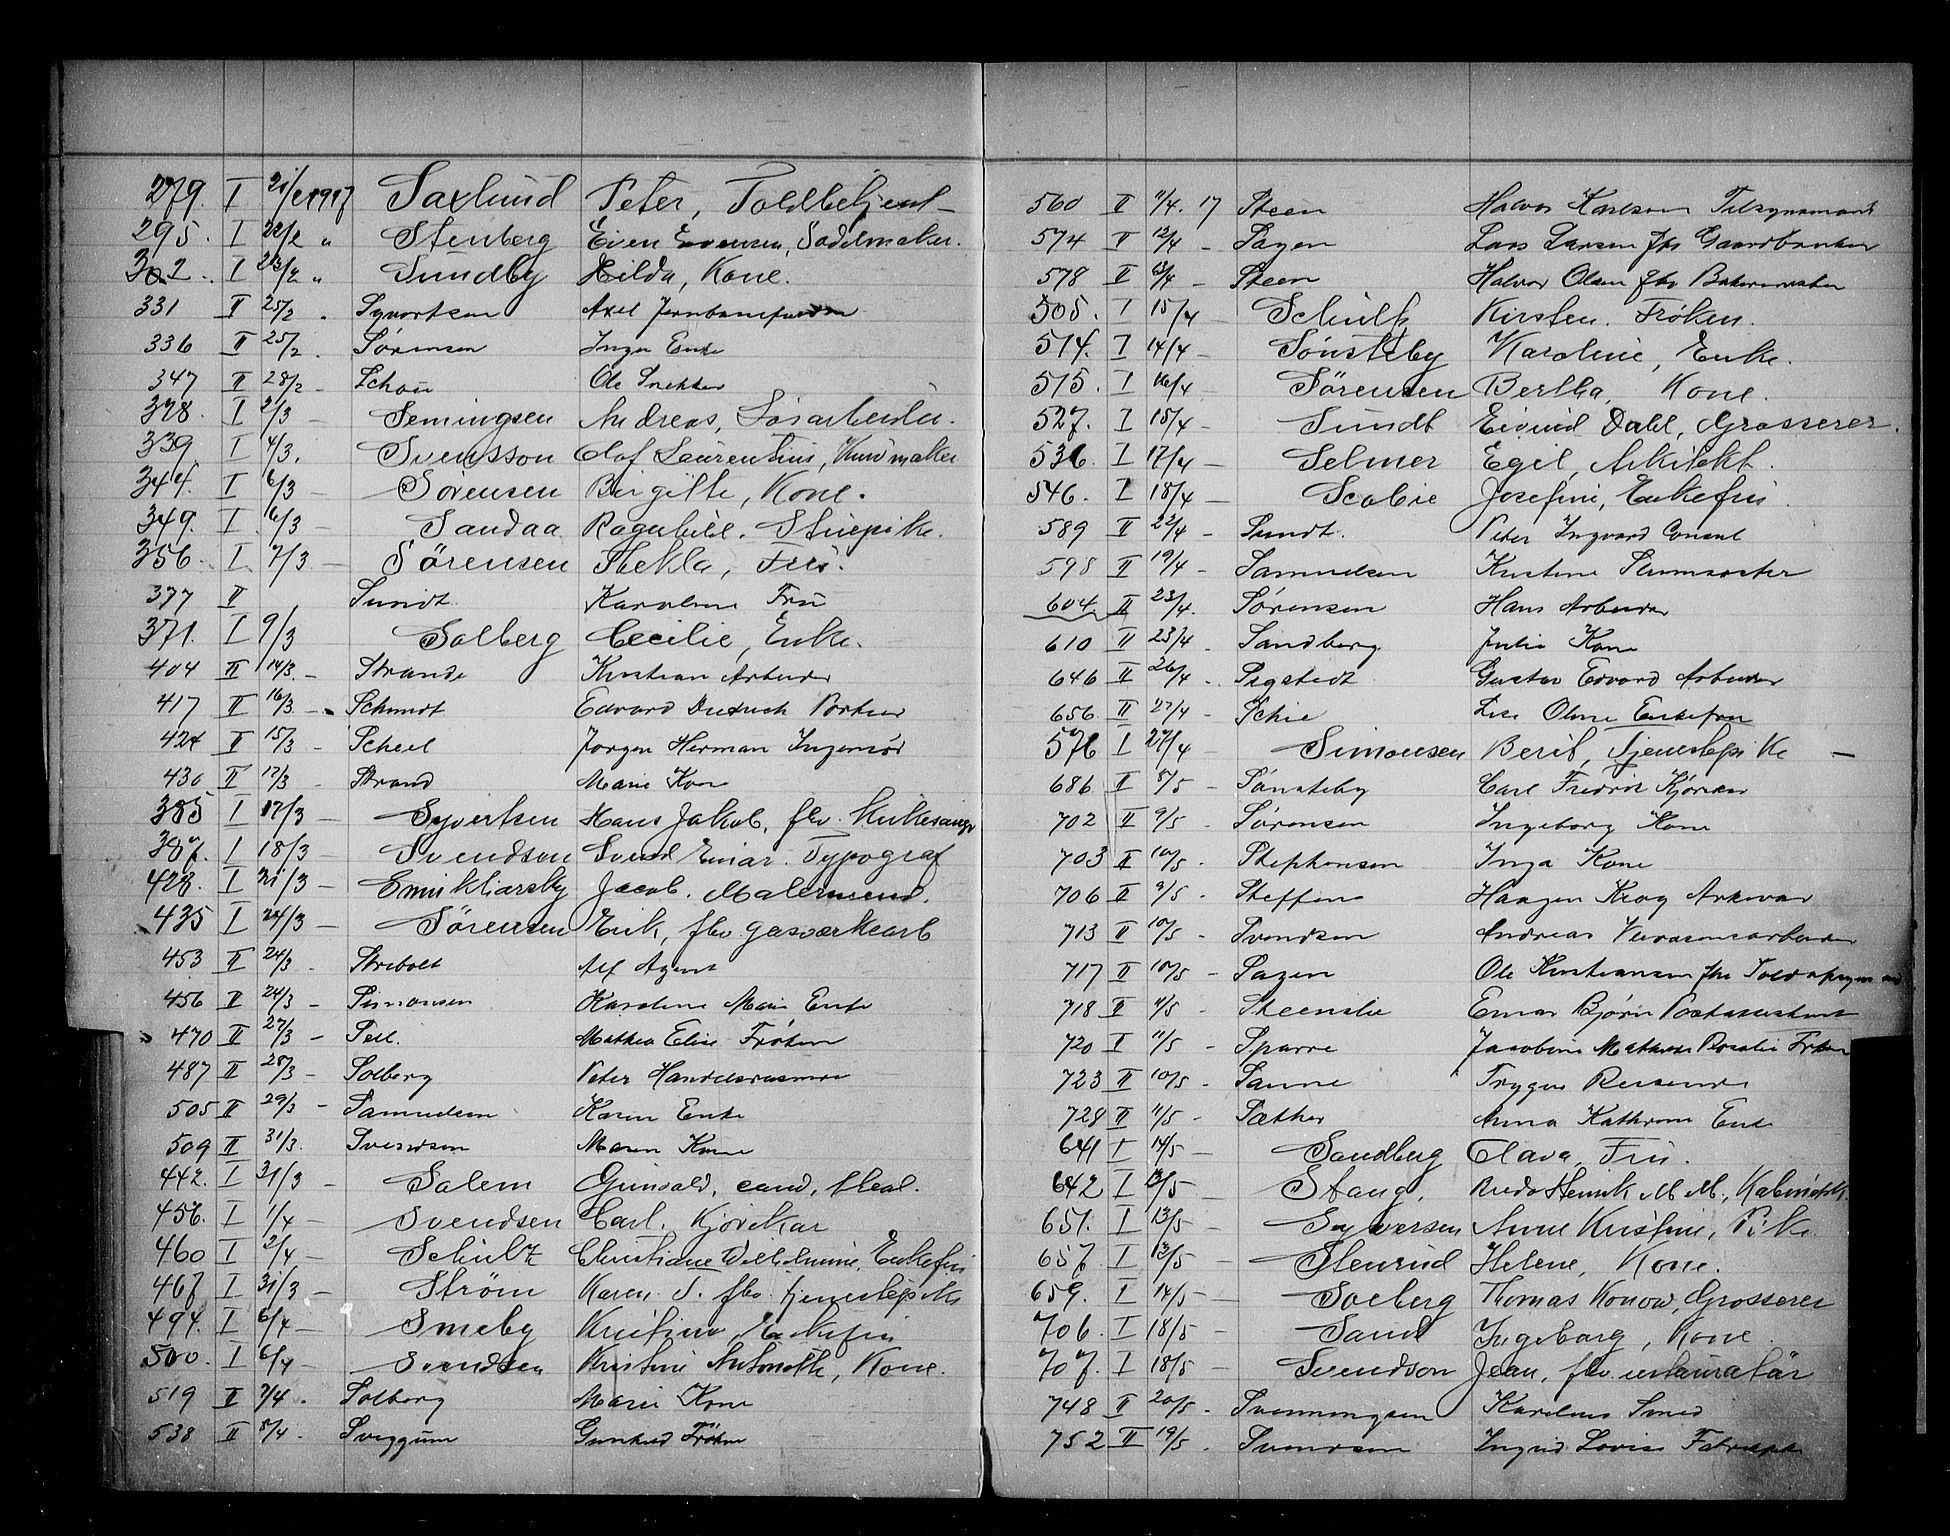 279. I 21/2 1917 Saxlund Peter, Toldbetjent
295. I 22/2 " Stenberg Even Evensen, Sadelmaker.
302. I 23/2 " Sundby Hilda, Kone.
331 II 25/2 " Syvertsen Axel
336 II 25/2 . Sørensen Inga Enke
347 II 28/2 - Schou Ole Snekker
378. I 2/3 - Semingsen Andreas,
339. I 4/3. Svensson Olof Laurentius,
344. I 6/3 - Sörensen Birgitte, Kone.
349. I 6/3 - Sandaa Ragnhild. Stuepike.
356. I 7/3 - Sørensen Thekla, Frü.
377 II Sundt. Karoline Frü
371. I 9/3 Solberg Cecilie, Enke.
404 II 14/3. - Strande Kristian Arbeider
417 II 16/3 - Schmidt Edvard Diedrich Portier
424 II 15/3 - Scheel Jørgen Herman Ingeniør
430 II 17/3 - Strand Marie Kone
385 I 17/3 - Syvertsen Hans Jakob, fhv. Kirkesanger
387. I 18/3 - Svendsen Svend Einar. Typograf
428. I 21/3 - Jacob. Malermend.
435 I 24/3 - Sørensen Erik, fhv. gasverksarb
453 II 24/3 - Strebolt Alf Agent
456 II 24/3 - Simonsen Karoline Marie Enke
470 II 27/3 - Sell. Mathea Elise Frøken
487 II 28/3 - Solberg Peter Handelsreisende
505 II 29/3 - Samuelsen Karen Enke
509 II 31/3. Svendsen Maren Kone
442. I 31/3 - Salem Grimsald, cand. theol.
456. I 1/4 - Svendsen Carl. Kjørekar
460 I 2/4 - Schultz Christiane Wilhelmine, Enkefru
467 I 31/3 - Strøm Karen S. fhv. tjenestepike
494. I 6/4 - Smeby Kristine, Enkefru
500. I 6/4 - Svendsen Kristine Antonette, Kone.
519 II 7/4 . Solberg Marie Kone
538 II 5/4 . Sveggum Gunhild Frøken
560 II 11/4. 17 Steen Halvor Karlsen Tilsynsmand
574 II 12/4 - Sagen Lars Larsen fhv Gaardbruker
578 II 12/4 - Steen Halvor Olsen fhv Bakermester
505. I 15/4 - Schultz Kirsten. Frøken.
514. I 14/4 - Sönsteby Karoline, Enke.
515. I 16/4 Sørensen Bertha, Kone.
527. I 15/4 - Sundt Eivind Dahl, Grosserer.
536. I 17/4 - Selmer Egil, Arkitekt.
546. I 18/4 - Scobie Josefine, Enkefru
589 II 22/4 - Sundt. Peter Ingvard Consul
598 II 19/4 - Samuelsen Kristine Slumsøster
604 II 23/4. Sørensen Hans Arbeider
610 II 23/4 . Sandberg Julie Kone
646 II 26/4 - Sigstedt Gustav Edvard Arbeider
656 II 27/4 - Schie Enkefru
576 I 27/4 Simonsen Berit, Tjenestepike -
686 II 5/5 - Sønsteby Carl Fredrik Kjørekar
702 II 9/5 - Sørensen Ingeborg Kone
703 II 10/5 - Stephansen Inga Kone
706 II 9/5 - Steffens Haagen Krog Arkivar
713 II 10/5 - Svendsen Andreas
717 II 10/5 - Sagen Ole Kristiansen fhv
718 II 11/5 - Steenslie Einar Bjørn Postassistent
720 I 11/5 - Sparre Jacobine Mathilde Rosalie Frøken
723 II 10/5 - Sanne Trygve Reisende
728 II 11/5 - Sæther Anna Kathrine Enke
641 I 14/5 - Sandberg Clara, Frü.
642 I 12/5 - Stang, Bredo Henrik M. M.,
651. I 13/5 - Syversen Anne Kristine, Pike.
657. I 13/5 - Stenrud Helene, Kone.
659. I 14/5 - Solberg Thomas Konow, Grosserer
706. I 18/5 - Sand Ingeborg, Kone.
707. I 18/5 - Svendsen Jean, fhv. restauratør
748 II 20/5 - Svenningsen Karelius Smed
752 II 19/5 . Svendsen Ingrid Lovise